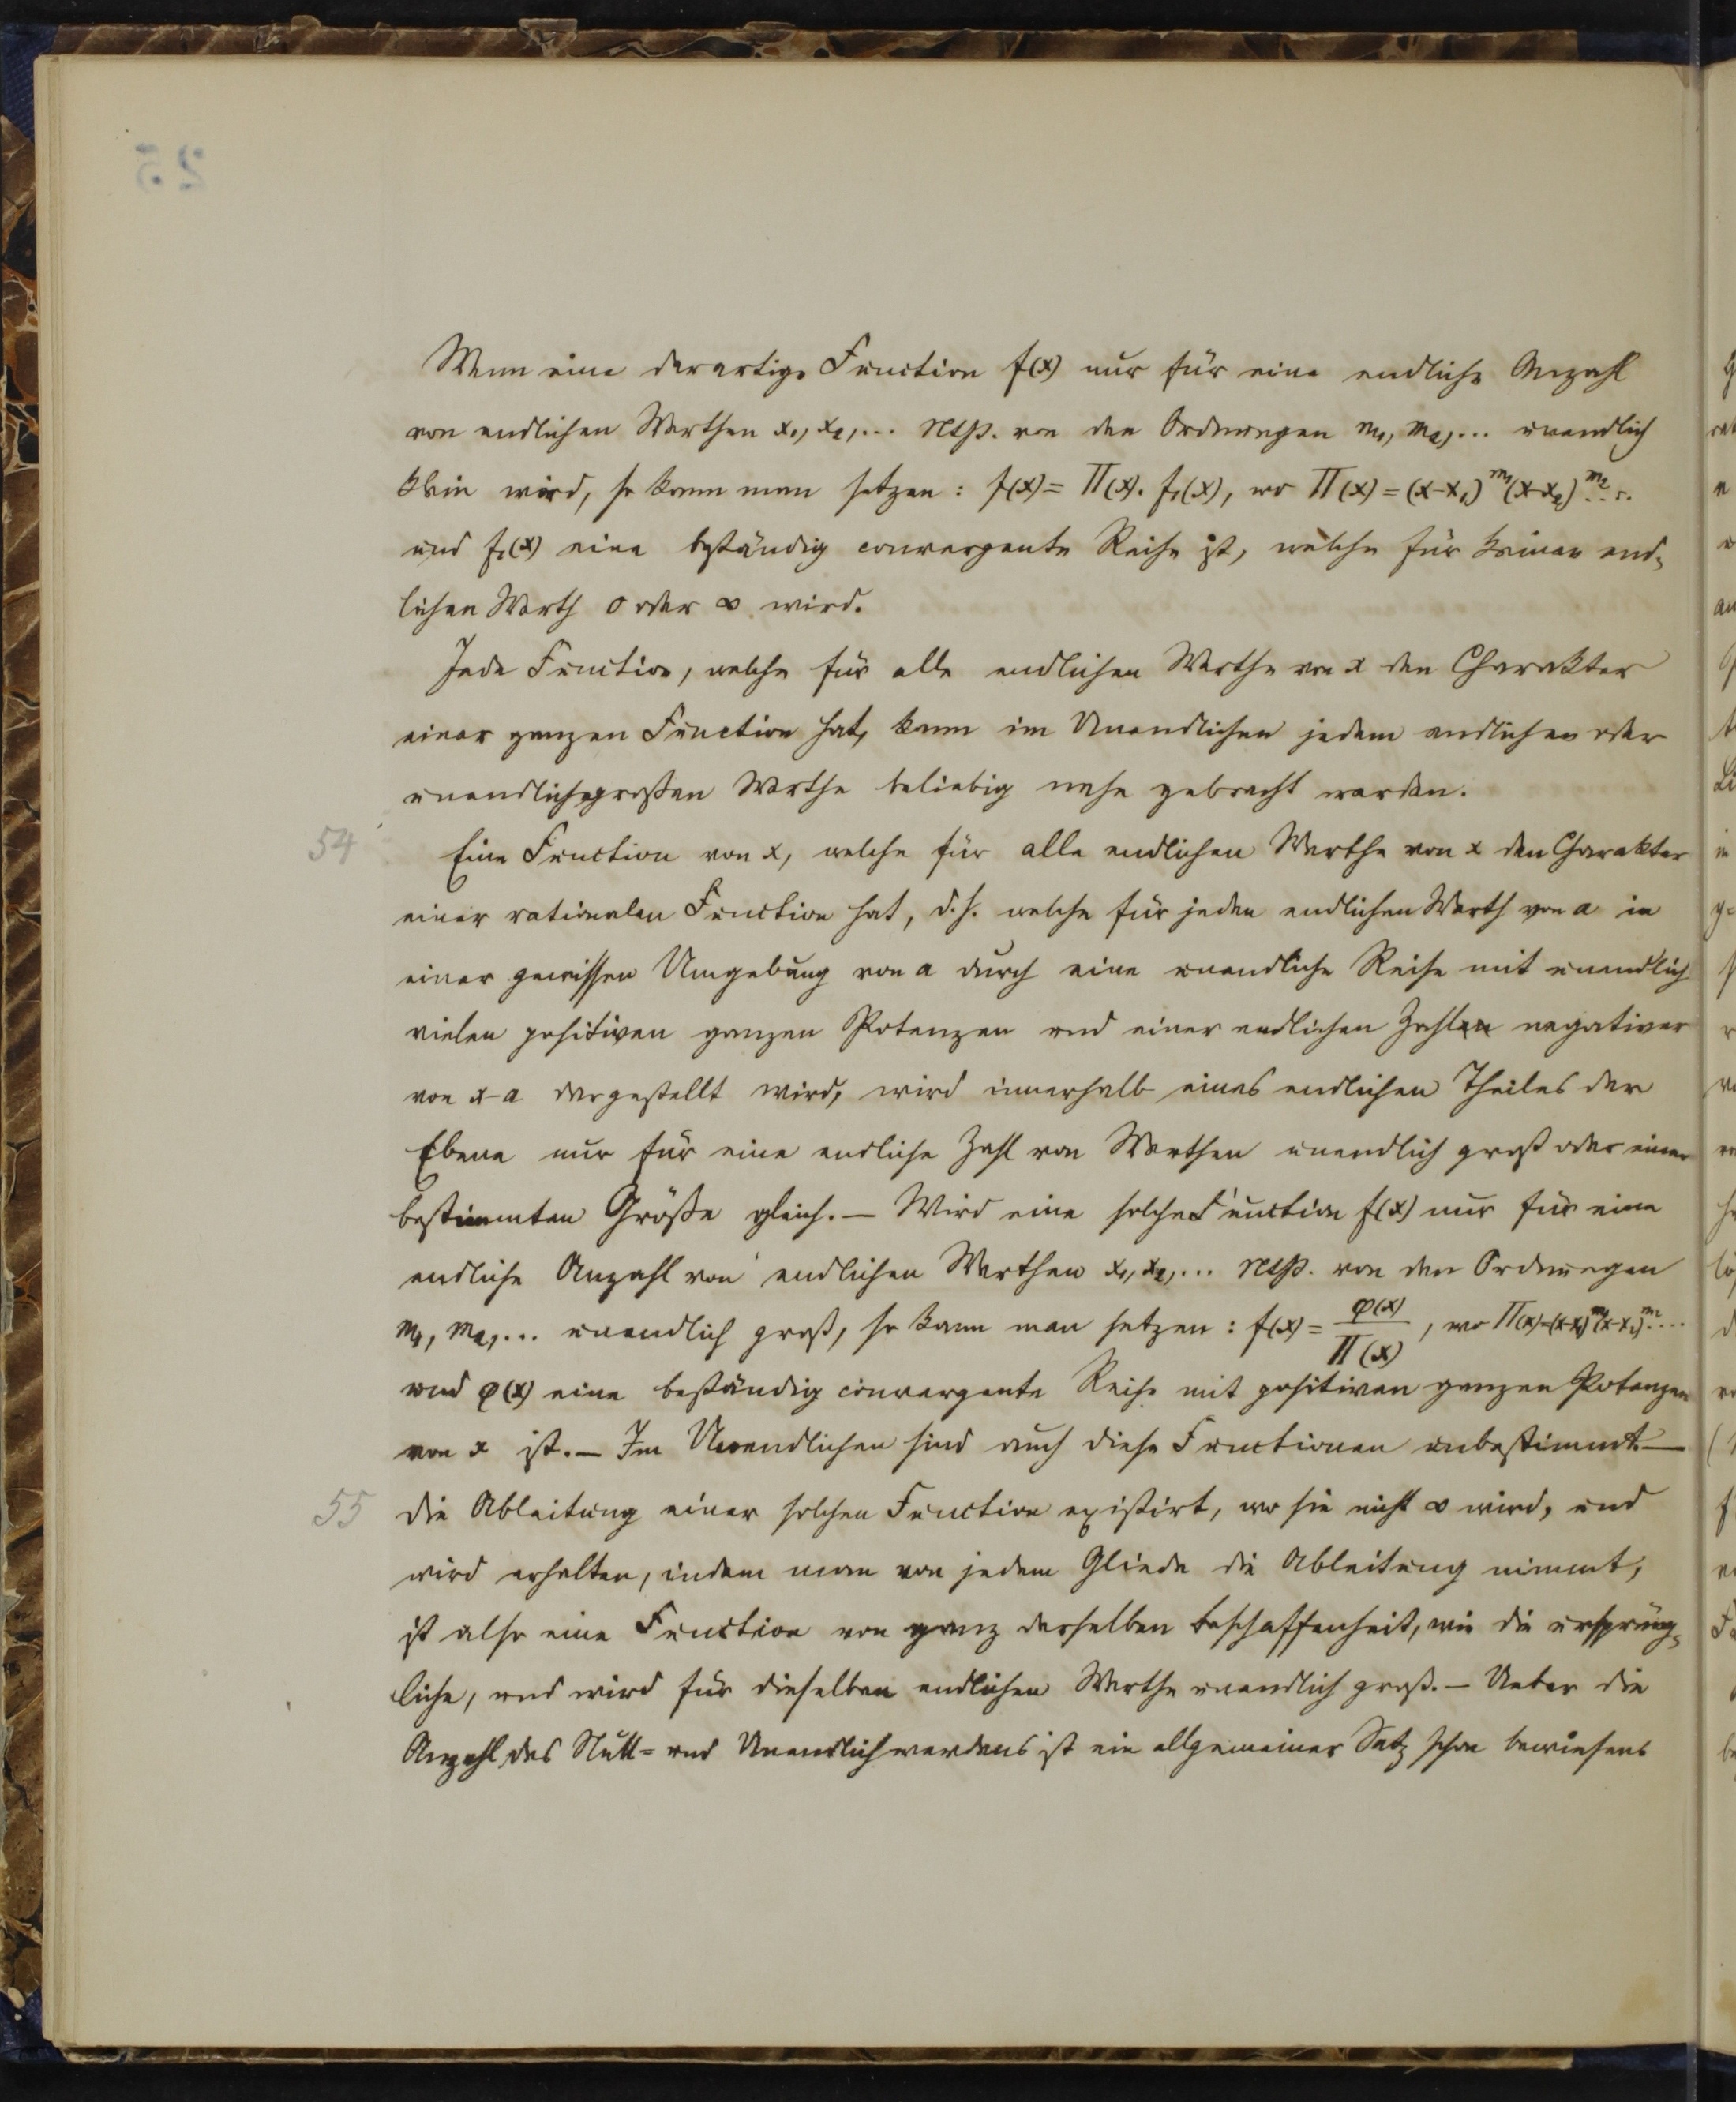 Wenn eine derartige Function f(x) nur für eine endliche Anzahl
von endlichen Werthen x₁, x₂, ... resp. von den Ordnungen m₁, m₂, ... unendlich
klein wird, so kann man setzen: f(x) = Π(x). f₁(x), wo Π(x) = (x-x₁)^m₁ (x-x₂)^m₂ ...
und f₁(x) eine beständig convergente Reihe ist, welche für keinen end-
lichen Werth 0 oder ∞ wird.
Jede Function, welche für alle endlichen Werthe von x den Charakter
einer ganzen Function hat, kann im Unendlichen jedem endlichen oder
unendlichgroßen Werthe beliebig nahe gebracht werden.
54 Eine Function von x, welche für alle endlichen Werthe von x den Charakter
einer rationalen Function hat, d.h. welche für jeden endlichen Werth von a in
einer gewissen Umgebung von a durch eine unendliche Reihe mit unendlich
vielen positiven ganzen Potenzen und einer endlichen Zahl negativer
von x-a dargestellt wird, wird innerhalb eines endlichen Theiles der
Ebene nur für eine endliche Zahl von Werthen unendlich groß oder einer
bestimmten Größe gleich. — Wird eine solche Function f(x) nur für eine
endliche Anzahl von endlichen Werthen x₁, x₂, ... resp. von den Ordnungen
m₁, m₂, ... unendlich groß, so kann man setzen: f(x) = φ(x)/Π(x), wo Π(x)=(x-x₁)^m₁(x-x₂)^m₂....
und φ(x) eine beständig convergente Reihe mit positiven ganzen Potenzen
von x ist. — Im Unendlichen sind auch diese Functionen unbestimmt. —
55 Die Ableitung einer solchen Function existirt, wo sie nicht ∞ wird, und
wird erhalten, indem man von jedem Gliede die Ableitung nimmt,
ist also eine Function von ganz derselben Beschaffenheit, wie die ursprüng-
liche, und wird für dieselben endlichen Werthe unendlich groß. — Ueber die
Anzahl des Null- und Unendlichwerdens ist ein allgemeiner Satz schon bewiesen